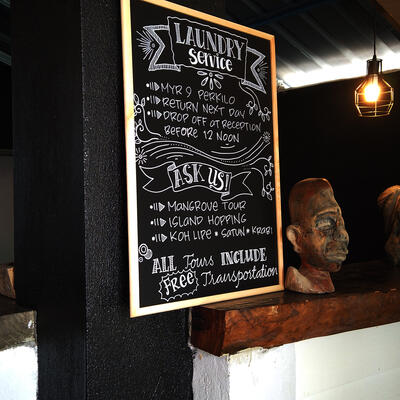 LAUNDRY
Service
MYR 9 PERKILO
RETURN NEXT DAY
DROP OFF AT RECEPTION
BEFORE 12 NOON
ASK US!
MANGROVE TOUR
ISLAND HOPPING
KOH LIPE • SATUN • KRABI
ALL Tours INCLUDE
FREE Transportation